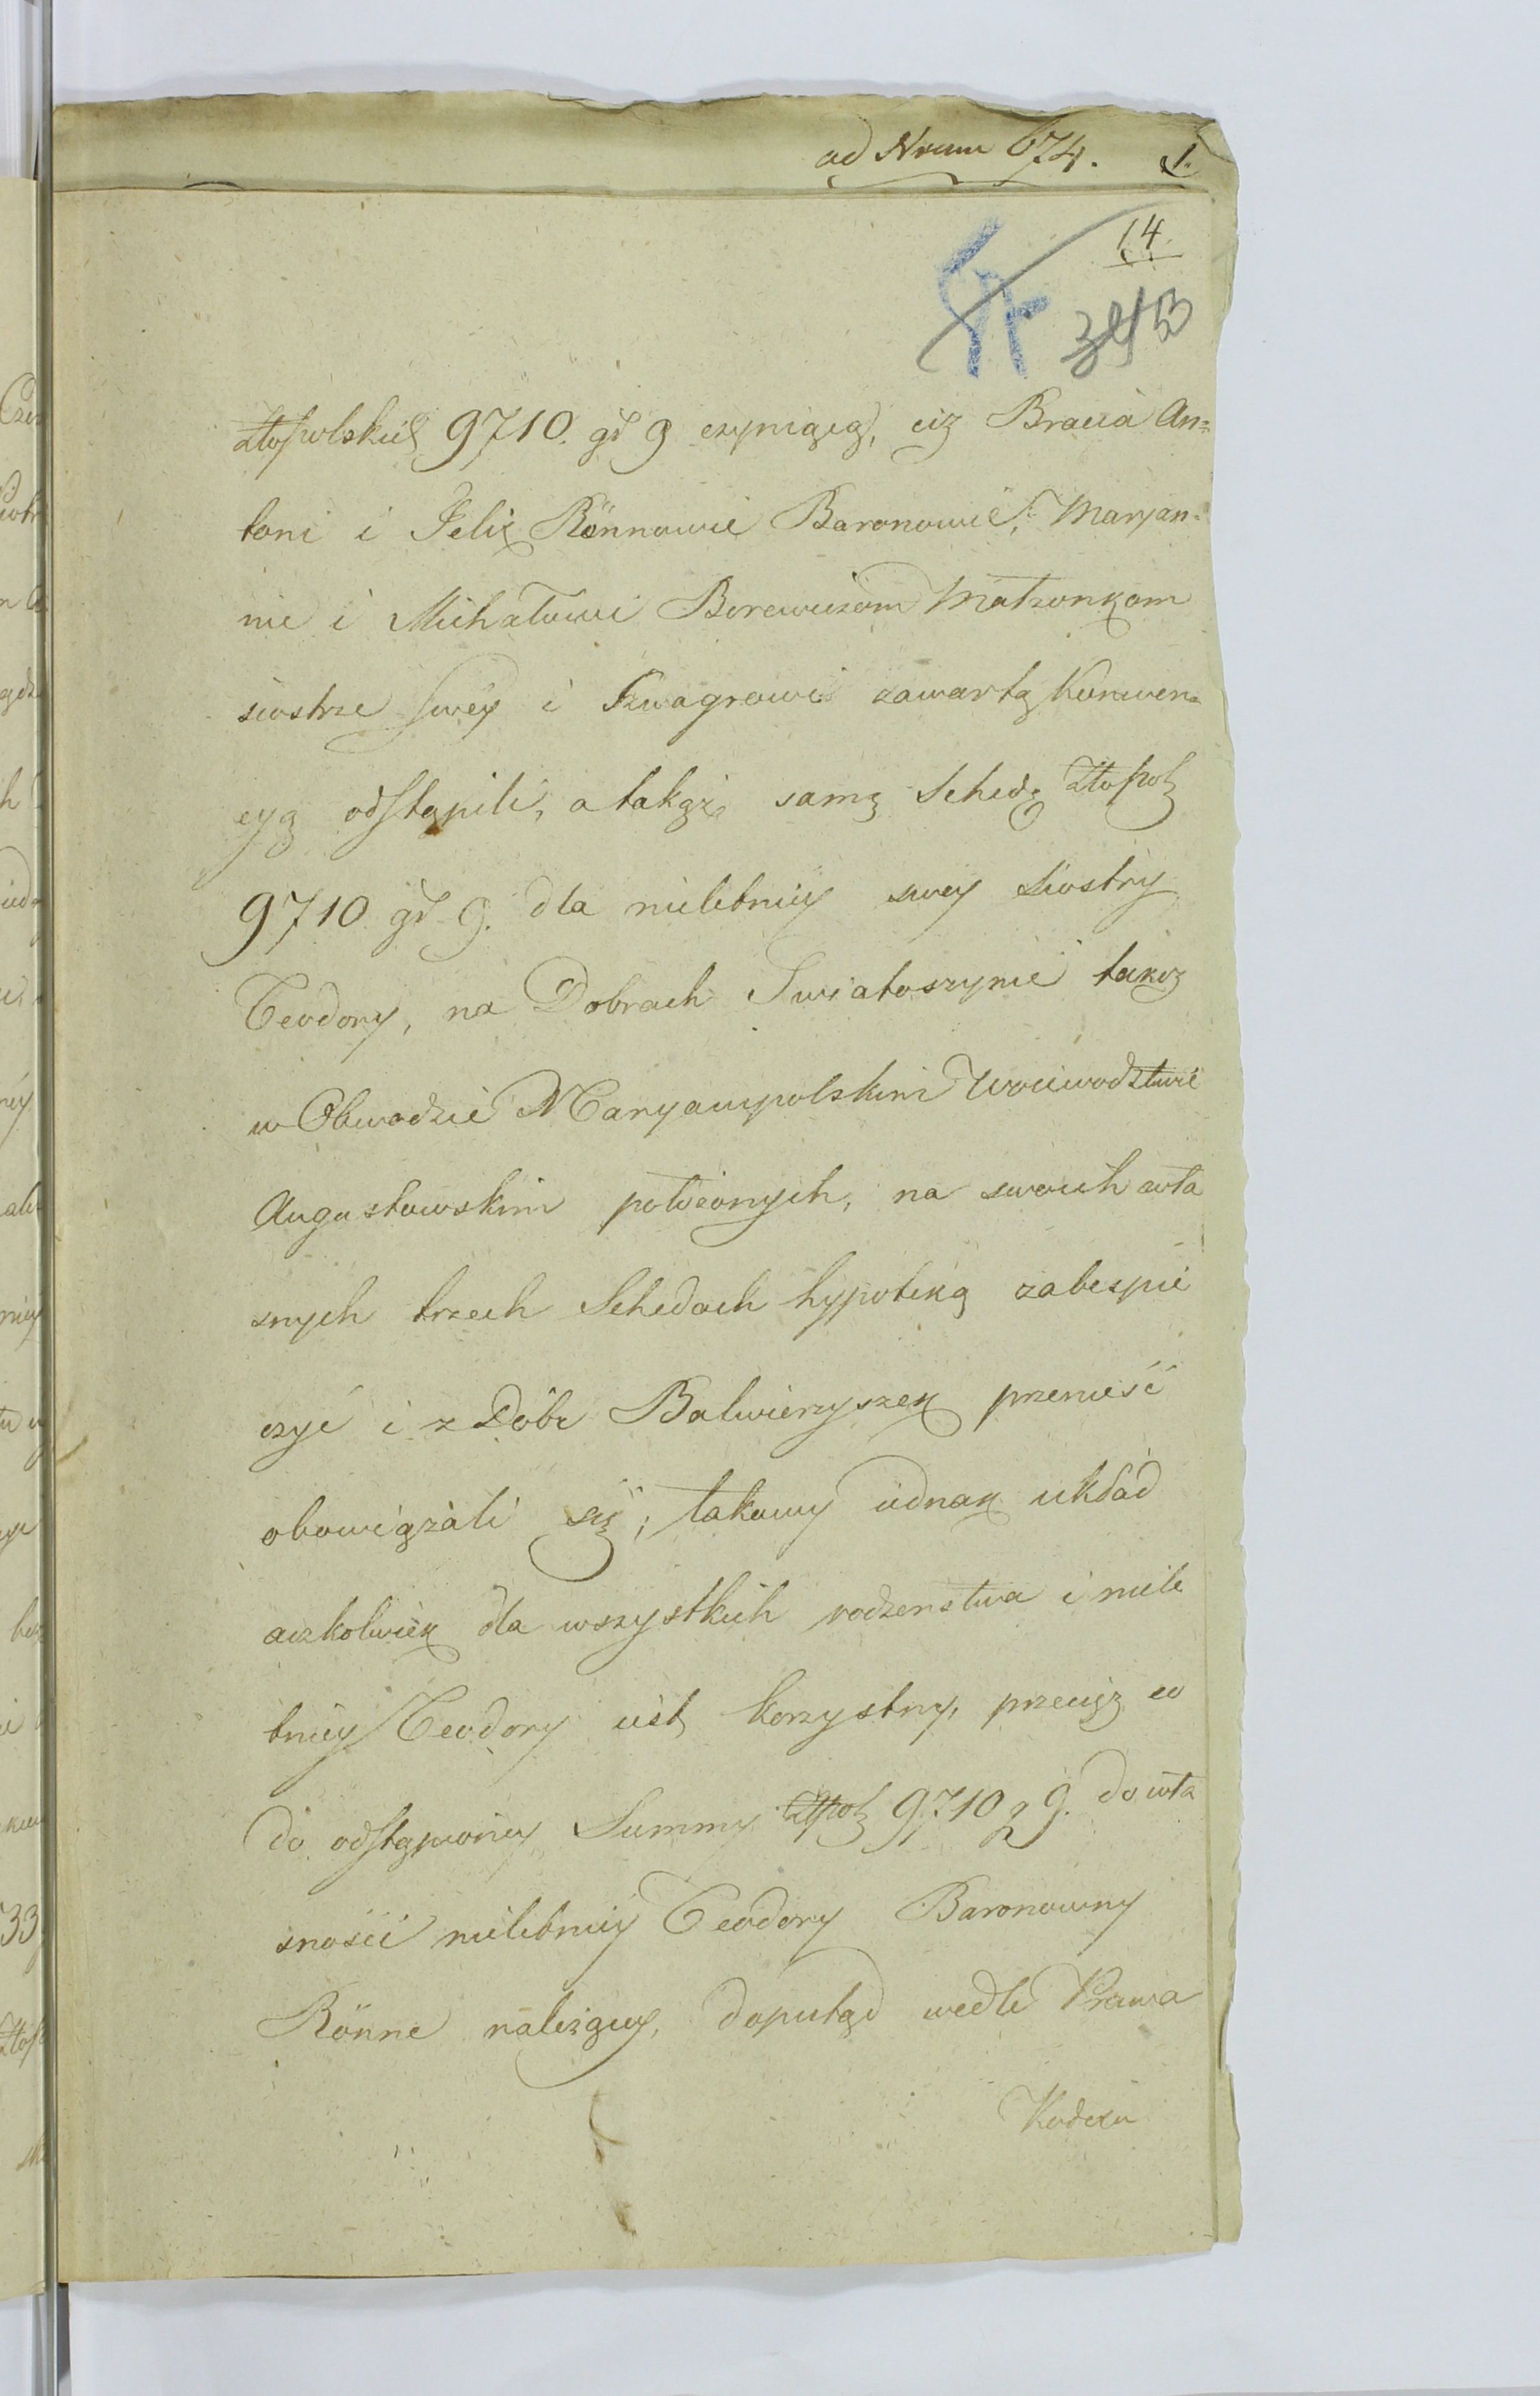 ad Nrum 674. 1.
14.
złołpolskich 9710. gr 9 czyniącą, ciż Bracia An=
toni i Felix Rönnowie Baronowie, Maryan=
nie i Michałowi Borewiczom Małżonkom
siostrze swéy i Szwagrowi zawartą Konwen=
cyą odstąpili, a takąż samą Schedę Złopol
9710 gr 9. dla nieletniéy swey Siostry
Teodory, na Dobrach Swiatoszynie takoż
w Obwodzie Maryampolskim Woiewodztwie
Augustowskim położonych, na swoich wła
snych trzech Schedach hypoteką zabespie
czyć i z Dóbr Balwierzyszek przenieść
obowiązali się; takowy iednak układ
aczkolwiek dla wszystkich rodzenstwa i niele
tniey Teodory iest korzystny, przecięż co
do odstąpioney Summy Złpol 9710 g 9. do wła
sności nieletniéy Teodory Baronowny
Rönne należącey, doputąd wedle Prawa
Kodexu